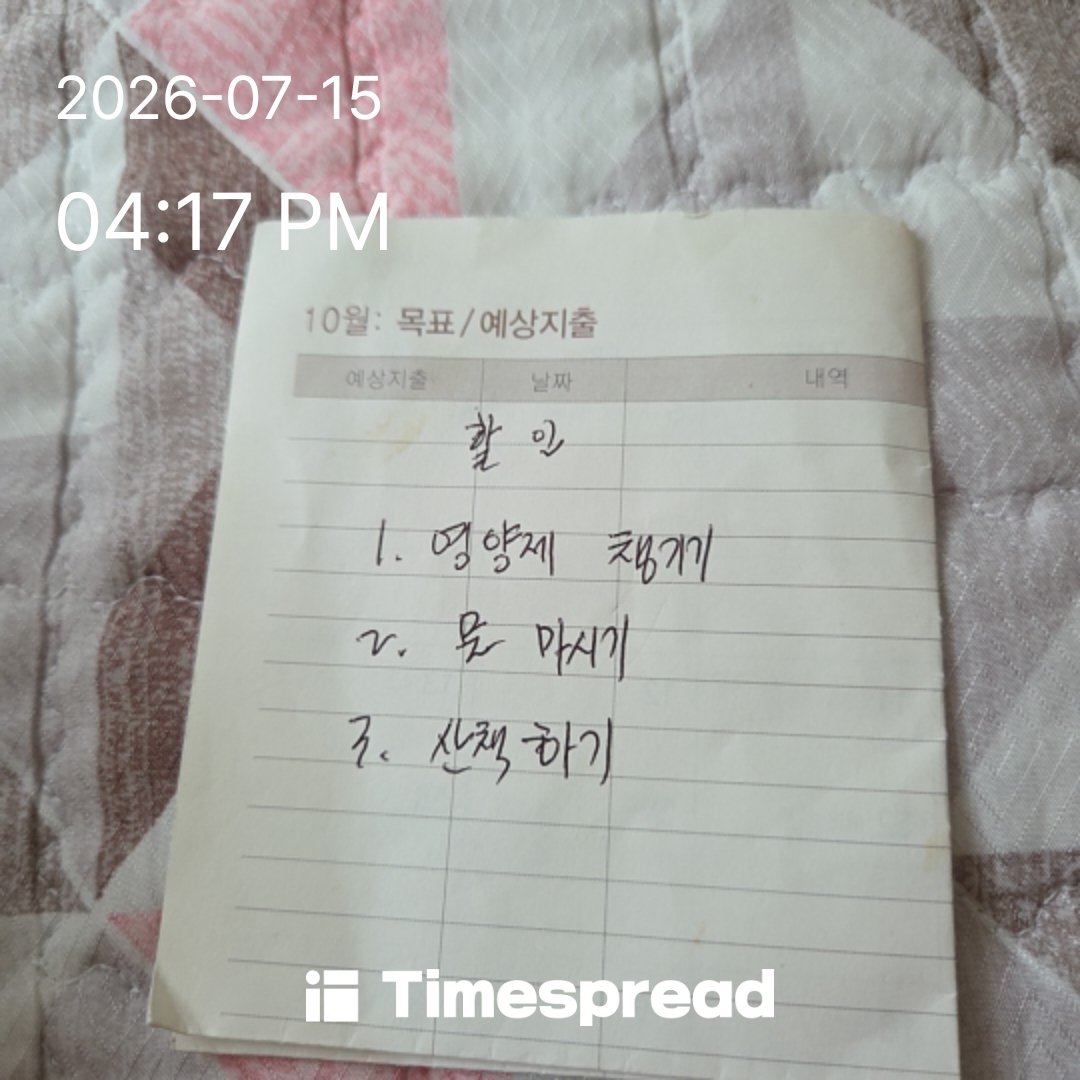 2026-07-15
04:17 PM
10월: 목표/예상지출
예상지출 날짜 내역
할 인
1. 영양제 챙기기
2. 물 마시기
3. 산책하기
Timespread